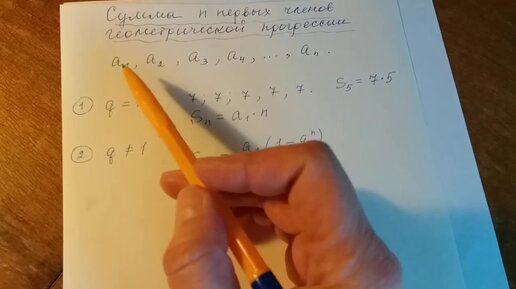 Сумма n первых членов
геометрической прогрессии
a₁, a₂, a₃, a₄, ..., aₙ.
① q = 7; 7; 7, 7; 7. S₅ = 7·5
Sₙ = a₁·n
② q ≠ 1 a₁(1-qⁿ)